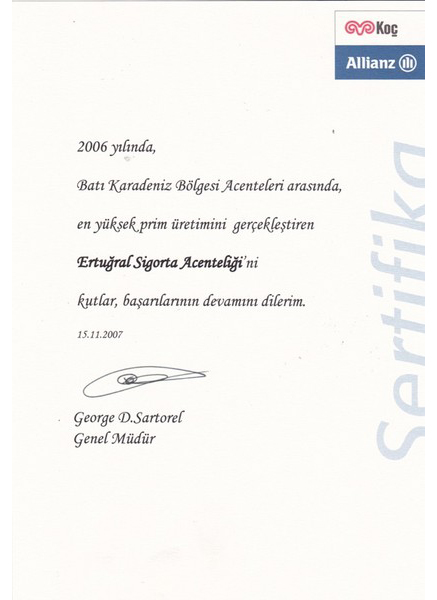 Koç
Allianz
Sertifika
2006 yılında,
Batı Karadeniz Bölgesi Acenteleri arasında,
en yüksek prim üretimini gerçekleştiren
Ertuğral Sigorta Acenteliği'ni
kutlar, başarılarının devamını dilerim.
15.11.2007
George D.Sartorel
Genel Müdür